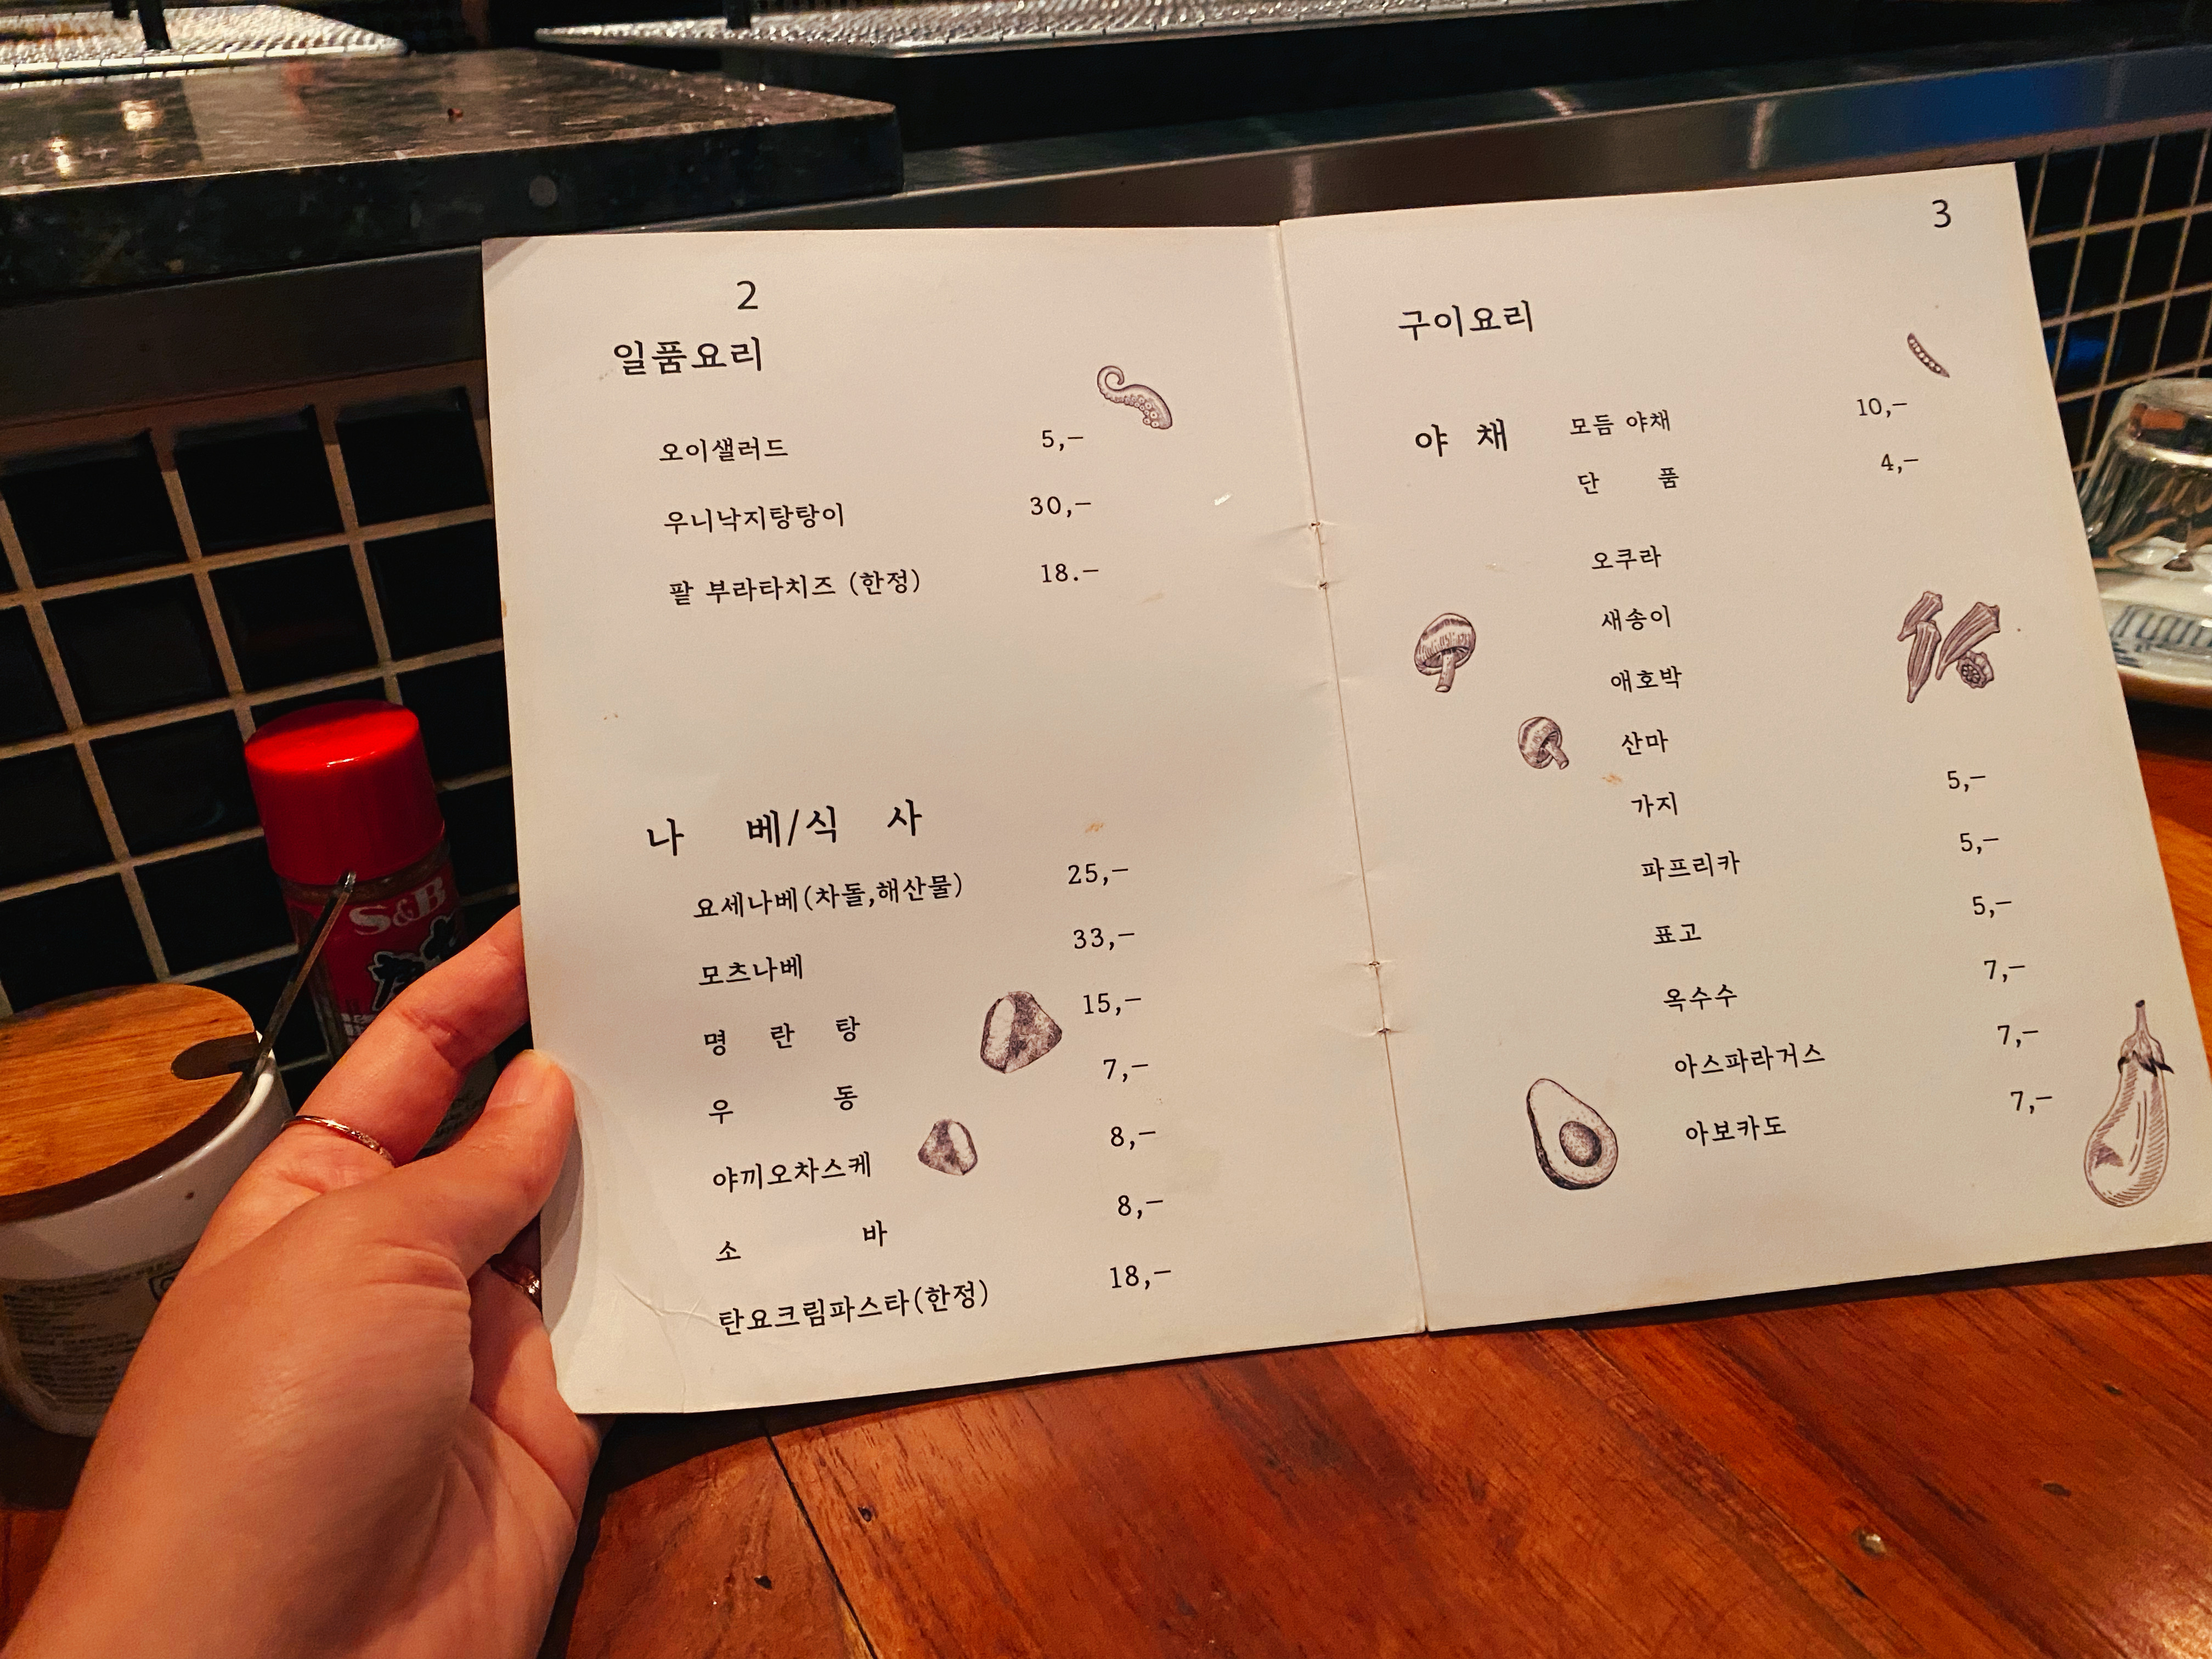 2
일품요리
오이샐러드 5,-
우니낙지탕탕이 30,-
팥 부라타치즈 (한정) 18.-
나 베/식 사
요세나베(차돌,해산물) 25,-
모츠나베 33,-
명 란 탕 15,-
우 동 7,-
야끼오차스케 8,-
소 바 8,-
탄요크림파스타(한정) 18,-
3
구이요리
야 채 모듬 야채 10,-
단 품 4,-
오쿠라
새송이
애호박
산마
가지
파프리카 5,-
표고 5,-
옥수수 5,-
아스파라거스 7,-
아보카도 7,-
7,-
S&B